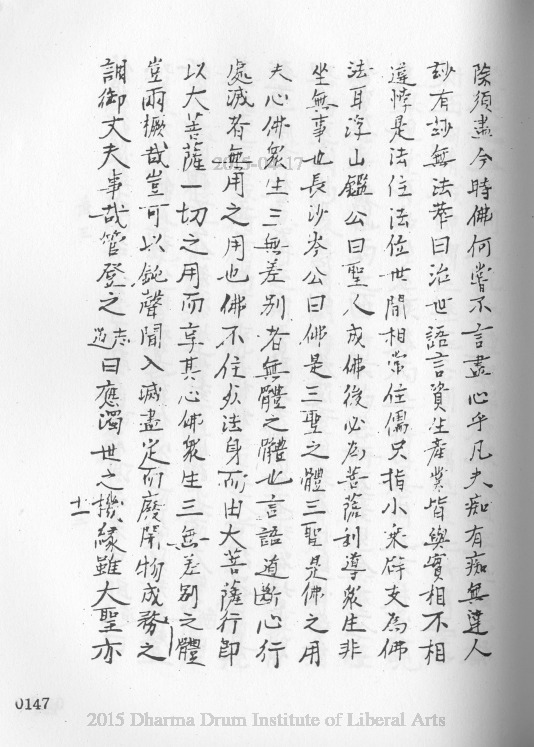 除須盡今時佛何嘗不言盡心乎凡夫痴有痴無達人
玅有玅無法華曰治世語言資生產業皆與實相不相
違悖是法住法位世間相常住儒只指小乘辟支為佛
法耳浮山鑑公曰聖人成佛後必為菩薩利導眾生非
坐無事也長沙岑公曰佛是三聖之體三聖是佛之用
夫心佛眾生三無差別者無體之體也言語道斷心行
處滅者無用之用也佛不住於法身而由大菩薩行即
以大菩薩一切之用而享其心佛眾生三無差別之體
豈兩橛哉豈可以鈍聲聞入滅盡定而廢開物成務之
調御丈夫事哉管登之志道曰應濁世之機緣雖大聖亦
十一
0147
2015-04-17
2015 Dharma Drum Institute of Liberal Arts